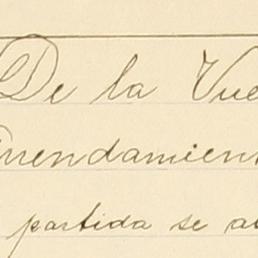 De la Vue
rrendamient
partida se a